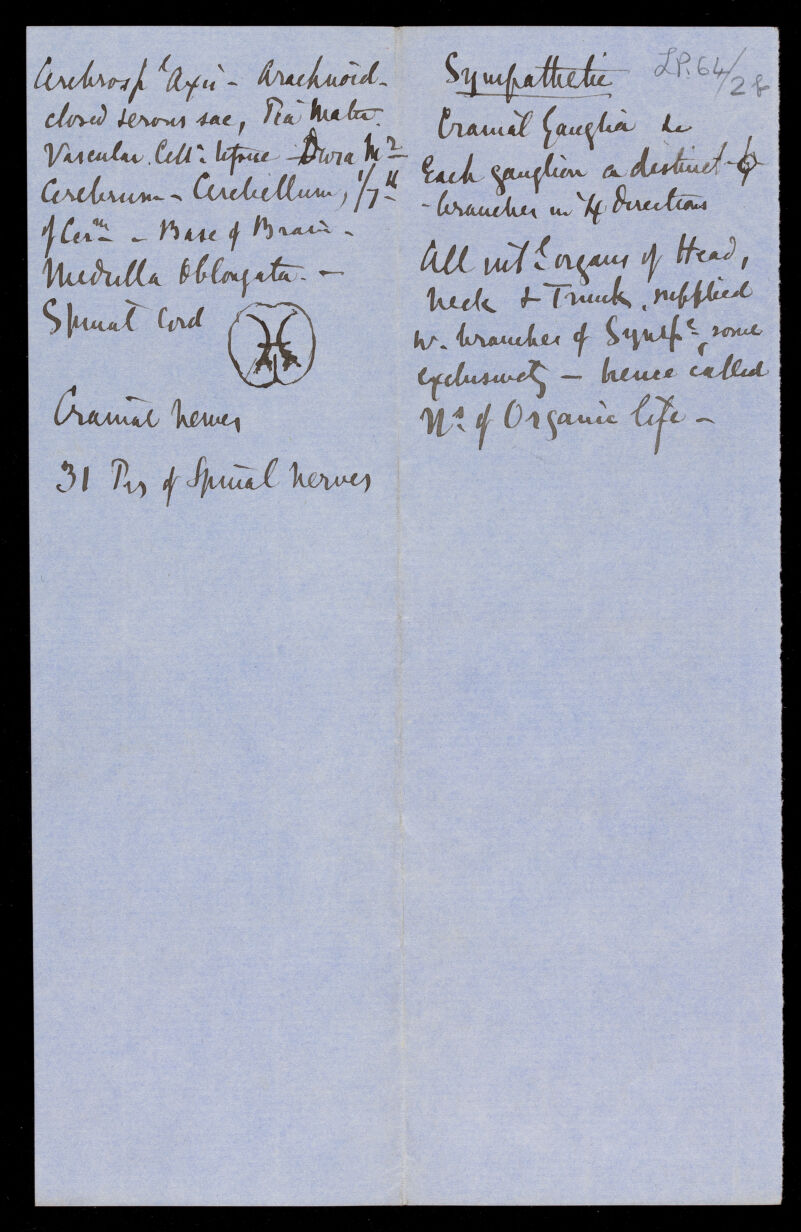 Cerebrosp^l Axis - Arachnoid -
closed serous sac, Pia Mater.
Vascular. Cell^r tissue - Dura M^r
Cerebrum - Cerebellum, 1/7^th
of Cer^m - Base of Brain -
Medulla Oblongata. -
Spinal Cord
Cranial Nerves
31 Prs of Spinal Nerves
LP.64/28
Sympathetic
Cranial Ganglia &c
Each ganglion a distinct
- branches in 4 directions
All int^l organs of Head,
Neck & Trunk, supplied
w. branches of Symp^c, some
exclusively - hence called
N^s of Organic life -